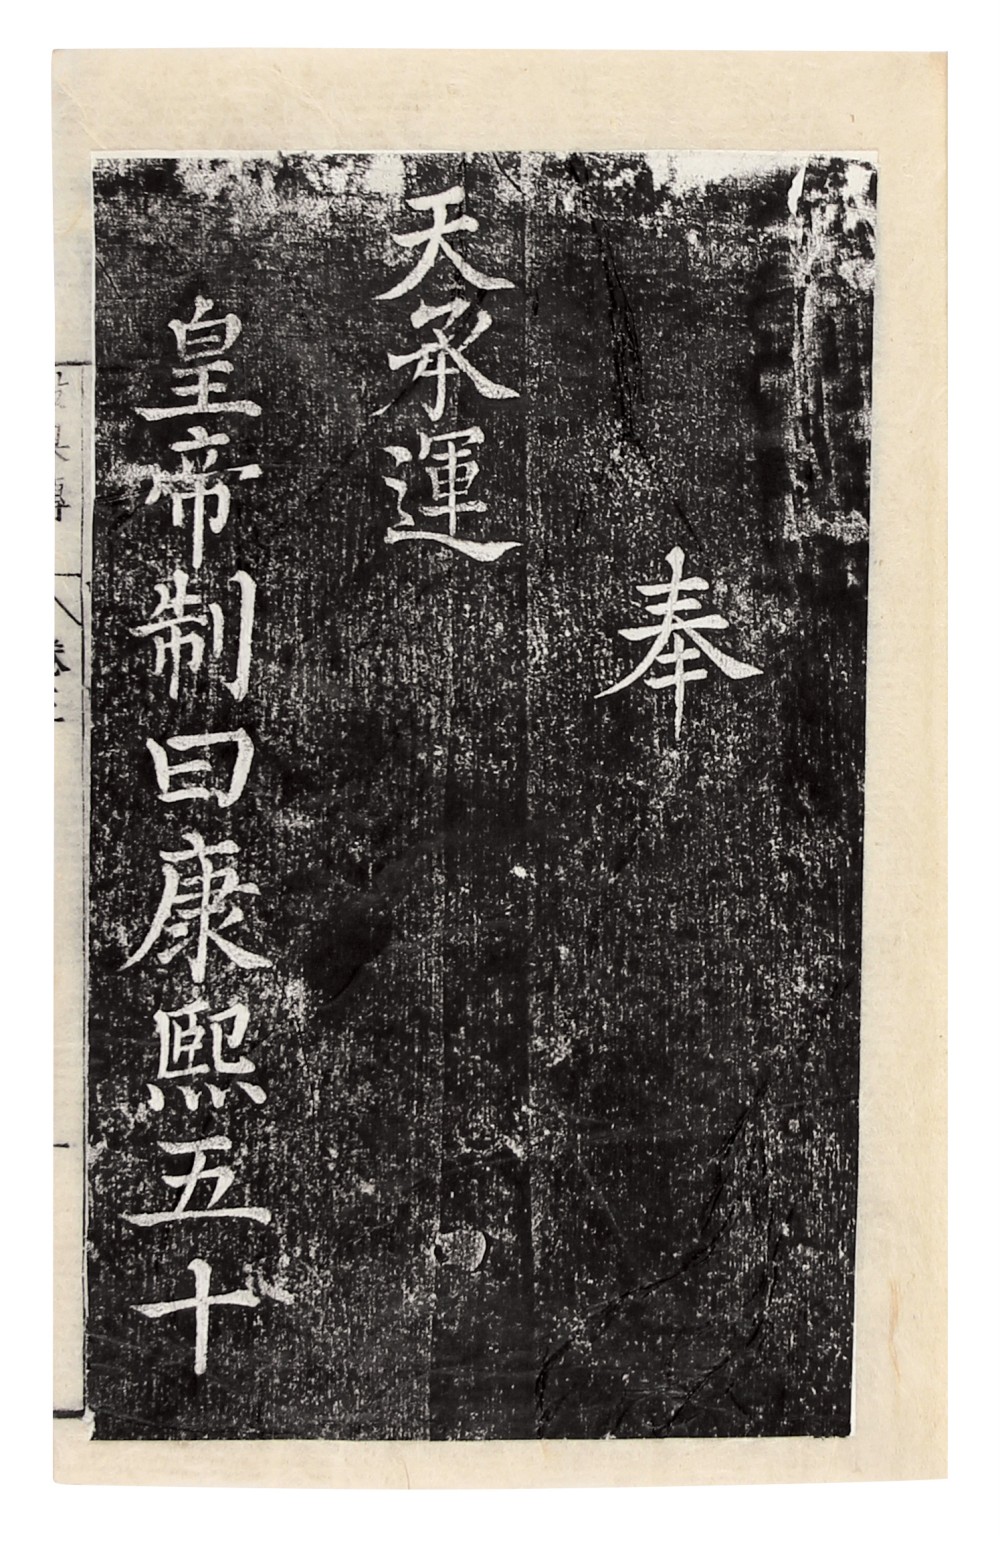 奉
天承運
皇帝制曰康熙五十